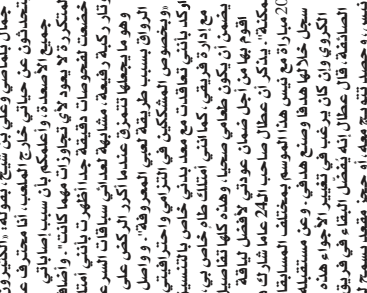 جمال بلماضي وعلي بن شيخ، بقوله: «الكثيرون
يتحدثون عن حياتي خارج الملعب، أنا محترف
جميع الأصعدة، وأعلمكم بأن سبب إصاباتي
المتكررة لا يعود لأي تجاوزات مهما كانت». وأضاف
خضعت لفحوصات دقيقة جدا أظهرت بأنني
أوتار ركبة رفيعة، مشابهة لعدائي سباقات
وهو ما يجعلها تتمزق عندما أكرر الركض على
الرواق بسبب طريقة لعبي المعروفة». وواصل
«وبخصوص المشككين في التزامي واحترافيتي
أؤكد بأنني تعاقدت مع معد بدني خاص بالتنسيق
مع إدارة فريقي، كما أنني أمتلك طاه خاص بي،
يضمن أن يكون طعامي صحيا، وهذه كلها تفاصيل
أقوم بها من أجل ضمان عودتي لأفضل لياقة
ممكنة». يذكر أن عطال صاحب الـ24 عاما شارك
20 مباراة مع نيس هذا الموسم بمختلف
سجل خلالها هدفا وصنع هدفين. وعن مستقبله
الكروي وإن كان يرغب في تغيير الأجواء هذه
الصائفة، قال عطال إنه يفضل البقاء في فريق
نيس، وحصد تتويج معه، أو حجز مقعد يسمح